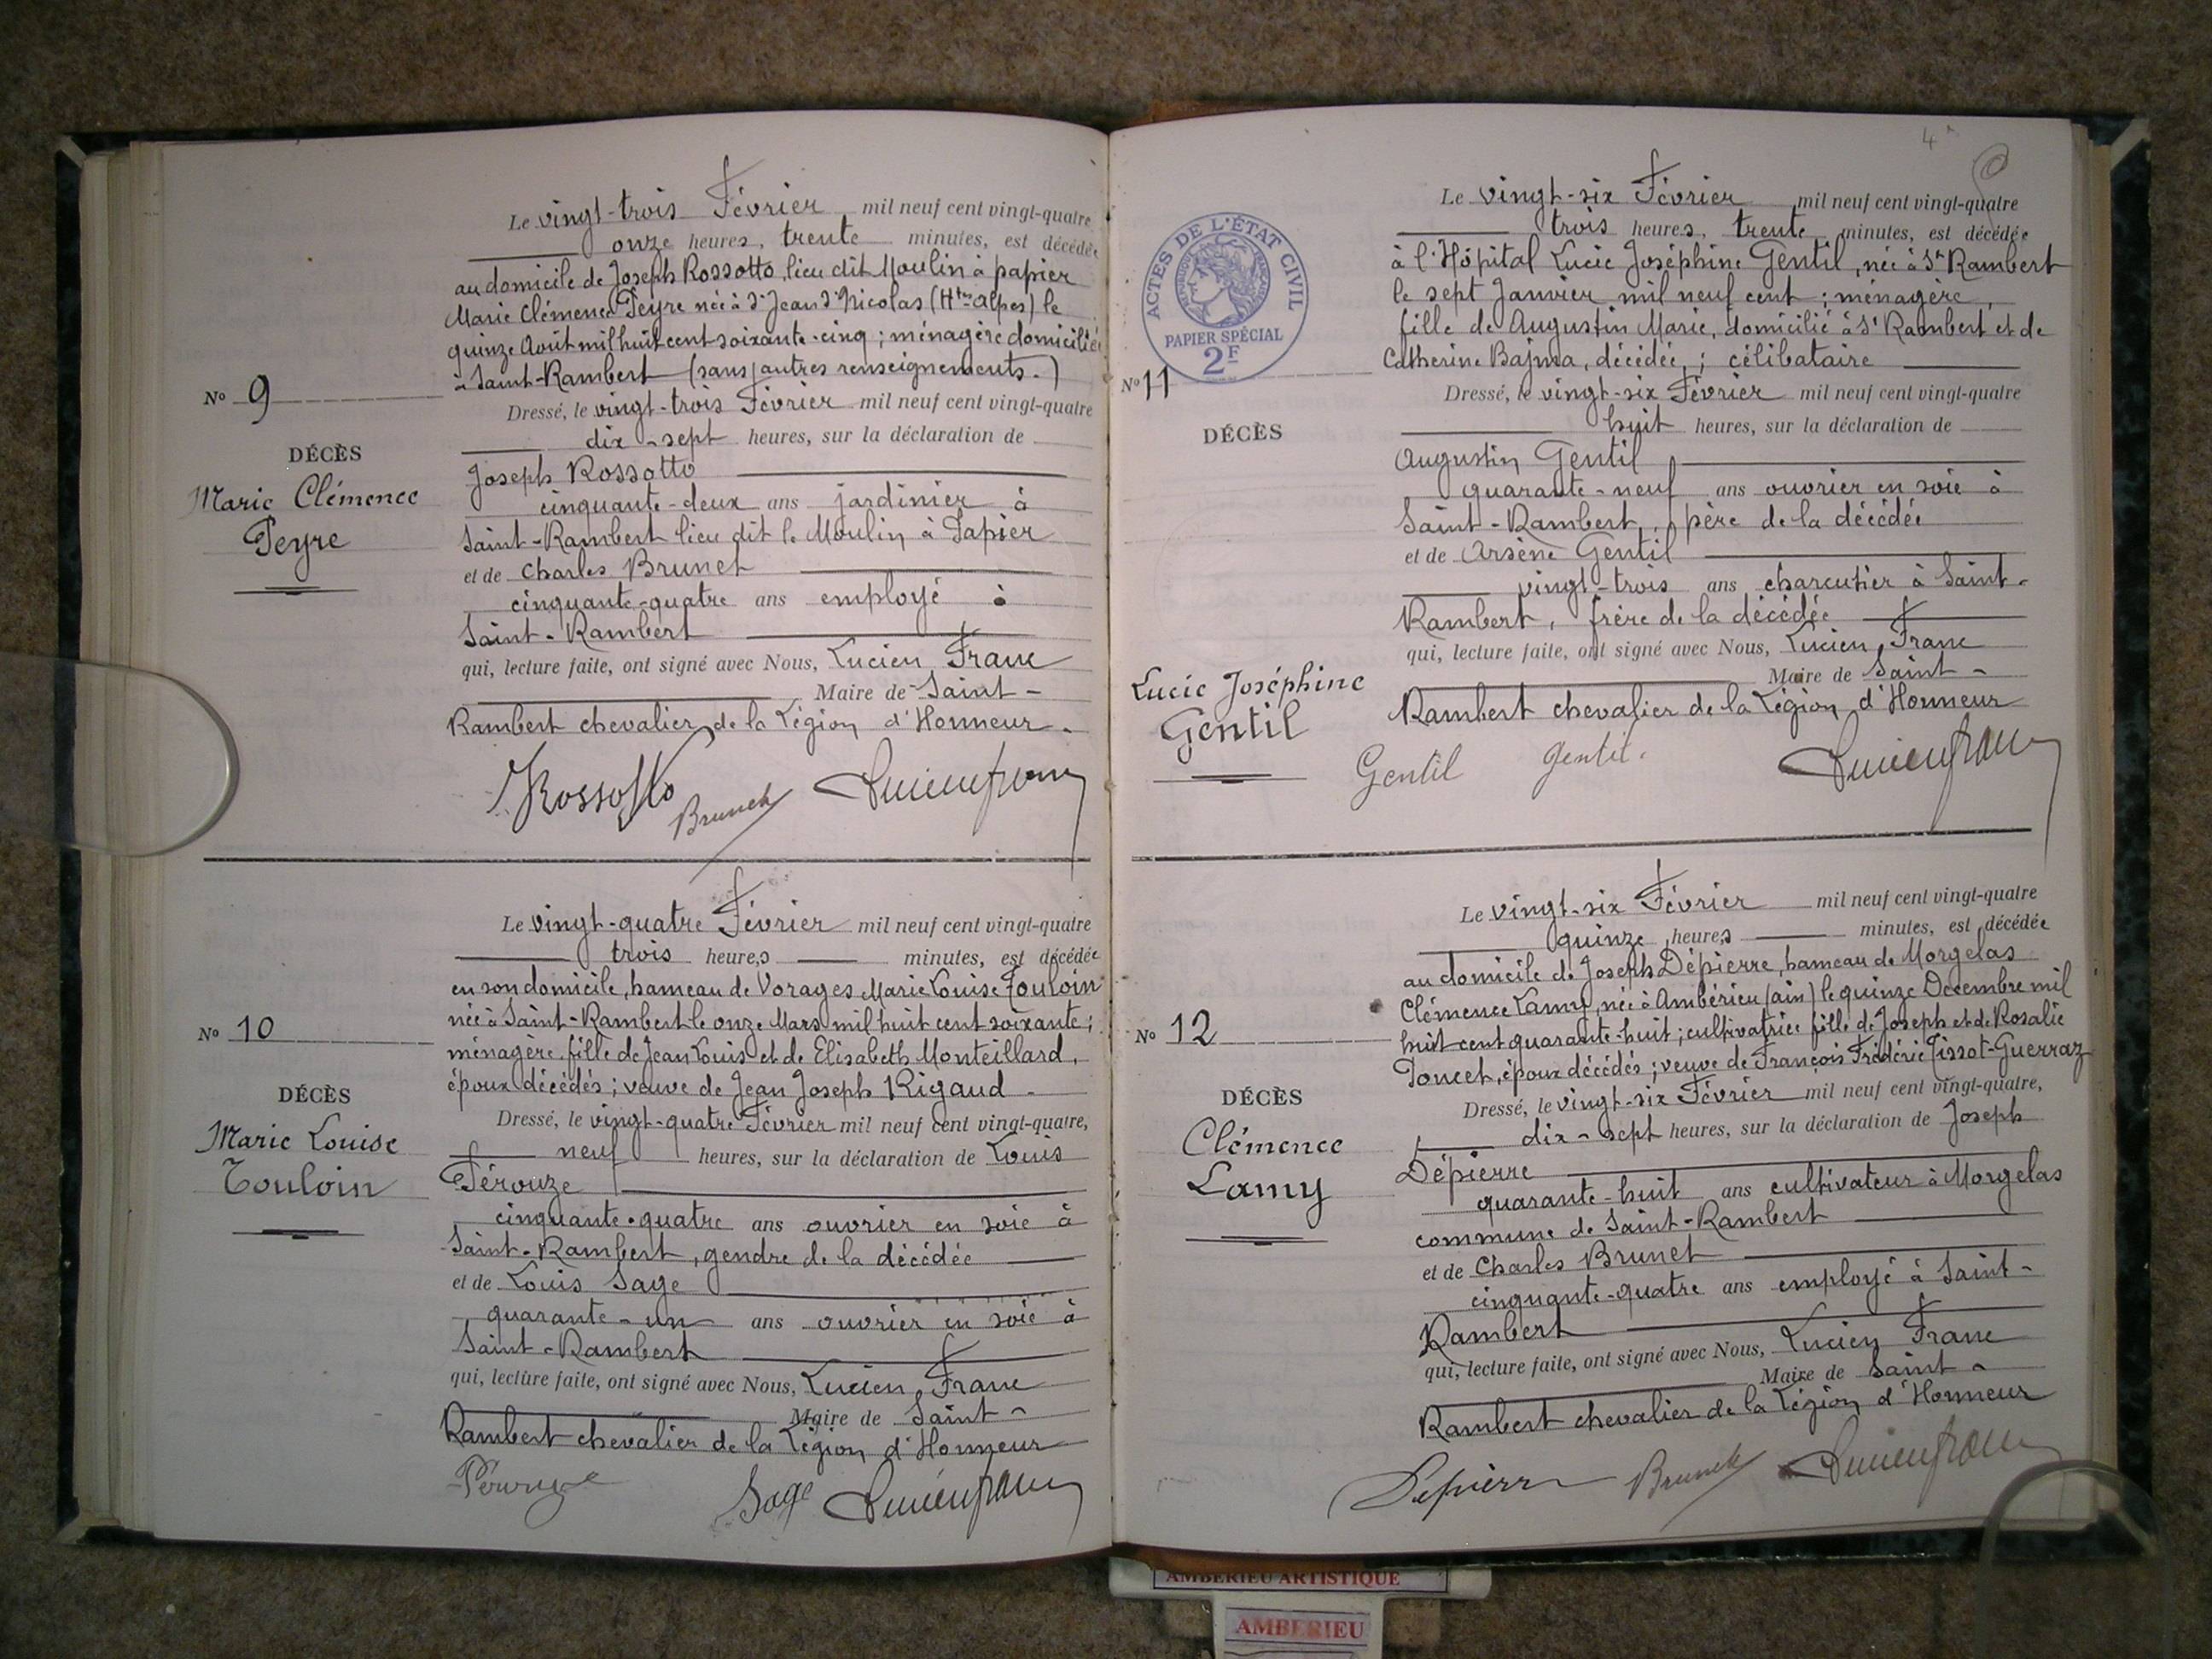 Le vingt-trois Février mil neuf cent vingt-quatre
onze heures, trente minutes, est décédée
au domicile de Joseph Rossotto, lieu dit Moulin à papier
Marie Clémence Peyre née à St Jean St Nicolas (Htes Alpes) le
quinze Août mil huit cent soixante-cinq ; ménagère domiciliée
à Saint-Rambert (sans autres renseignements.)
No 9
Dressé, le vingt-trois Février mil neuf cent vingt-quatre
dix-sept heures, sur la déclaration de
DÉCÈS
Marie Clémence
Peyre
Joseph Rossotto
cinquante-deux ans jardinier à
Saint-Rambert lieu dit le Moulin à Papier
et de Charles Brunet
cinquante-quatre ans employé à
Saint-Rambert
qui, lecture faite, ont signé avec Nous, Lucien Franc
Maire de Saint-
Rambert chevalier de la Légion d'Honneur.
Rossotto Brunet Lucien Franc
Le vingt-quatre Février mil neuf cent vingt-quatre
trois heures minutes, est décédée
en son domicile, hameau de Vorages Marie Louise Touloin
née à Saint-Rambert le onze Mars mil huit cent soixante ;
No 10
ménagère, fille de Jean Louis et de Elisabeth Monteillard,
époux décédés ; veuve de Jean Joseph Rigaud -
DÉCÈS
Marie Louise
Touloin
Dressé, le vingt-quatre Février mil neuf cent vingt-quatre,
neuf heures, sur la déclaration de Louis
Pérouze
cinquante-quatre ans ouvrier en soie à
Saint-Rambert, gendre de la décédée
et de Louis Sage
quarante-un ans ouvrier en soie à
Saint-Rambert
qui, lecture faite, ont signé avec Nous, Lucien Franc
Maire de Saint-
Rambert chevalier de la Légion d'Honneur
Pérouze Sage Lucien Franc
4
ACTES DE L'ÉTAT CIVIL
RÉPUBLIQUE FRANÇAISE
PAPIER SPÉCIAL
2F
Le vingt-six Février mil neuf cent vingt-quatre
trois heures, trente minutes, est décédée
à l'Hôpital Lucie Joséphine Gentil, née à St Rambert
le sept Janvier mil neuf cent ; ménagère,
fille de Augustin Marie, domicilié à St Rambert et de
Catherine Bajma, décédée ; célibataire
No 11
Dressé, le vingt-six Février mil neuf cent vingt-quatre
huit heures, sur la déclaration de
DÉCÈS
Augustin Gentil
quarante-neuf ans ouvrier en soie à
Saint-Rambert, père de la décédée
et de Arsène Gentil
vingt-trois ans charcutier à Saint-
Rambert, frère de la décédée
qui, lecture faite, ont signé avec Nous, Lucien Franc
Maire de Saint-
Lucie Joséphine
Gentil
Rambert chevalier de la Légion d'Honneur
Gentil Gentil. Lucien Franc
Le vingt-six Février mil neuf cent vingt-quatre
quinze heures minutes, est décédée
au domicile de Joseph Dépierre, hameau de Morgelas
Clémence Lamy, née à Ambérieu (Ain) le quinze Décembre mil
No 12
huit cent quarante-huit ; cultivatrice fille de Joseph et de Rosalie
Poncet, époux décédés ; veuve de François Frédéric Tissot-Guerraz
DÉCÈS
Clémence
Lamy
Dressé, le vingt-six Février mil neuf cent vingt-quatre,
dix-sept heures, sur la déclaration de Joseph
Dépierre
quarante-huit ans cultivateur à Morgelas
commune de Saint-Rambert
et de Charles Brunet
cinquante-quatre ans employé à Saint-
Rambert
qui, lecture faite, ont signé avec Nous, Lucien Franc
Maire de Saint-
Rambert chevalier de la Légion d'Honneur
Depierre Brunet Lucien Franc
AMBERIEU ARTISTIQUE
AMBERIEU